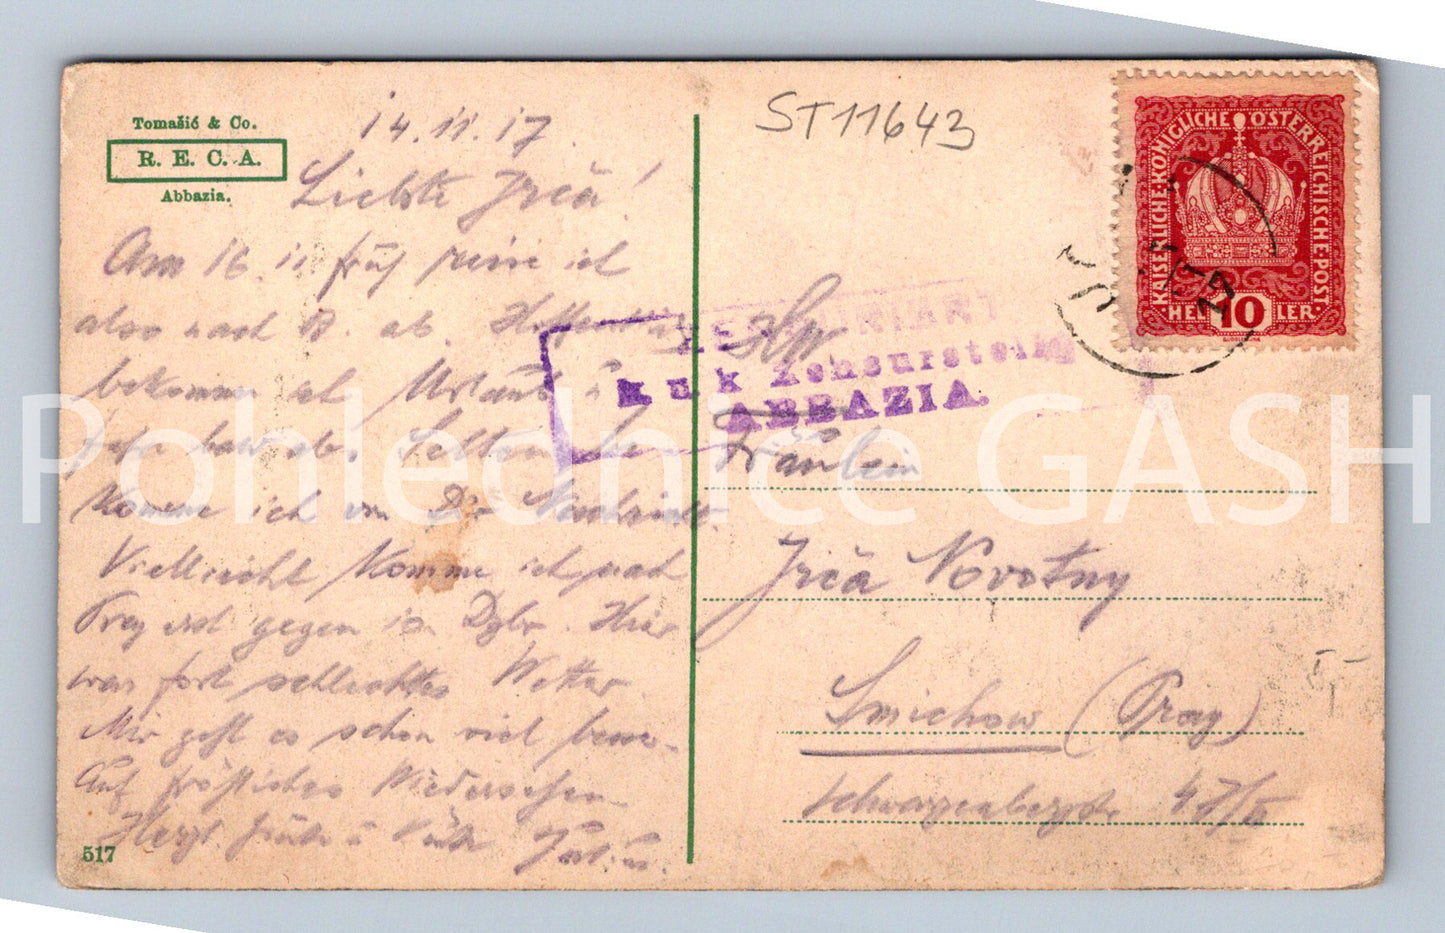 Tomašić & Co.
R. E. C. A.
Abbazia.
14.11.17
Liebste Jrča!
Am 16.11 früh reise ich
also nach B. ab. Hoffentlich
bekomme ich Urlaub u
fahre bald ab. Selten be
komme ich von Dir Nachricht.
Vielleicht komme ich nach
Prag erst gegen in Dzbr. Hier
war fort schlechtes Wetter.
Mir geht es schon viel besser.
Auf fröhliches Wiedersehen
Herzl. Grüße u Küße
517
ST11643
KAISERLICHE·KÖNIGLICHE ÖSTERREICHISCHE·POST
HELLER
10
k u k Zensurstelle
ABBAZIA.
Fräulein
Jrča Novotny
Smichow (Prag)
Schwarzenbergstr. 47/II
Pohlednice GASH